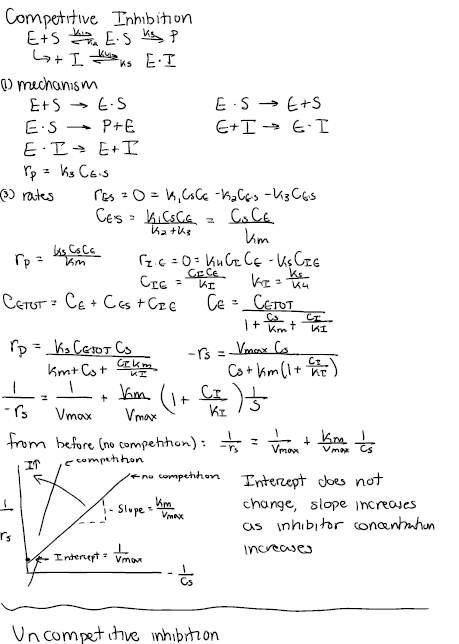 Competitive Inhibition
E+S ⇌ E·S → P
k1 k2 k3
↳ + I ⇌ E·I
k4 k5
(1) mechanism
E+S → E·S    E·S → E+S
E·S → P+E    E+I → E·I
E·I → E+I
rp = k3 CE·S
(3) rates    rES = 0 = k1CsCE - k2CE·S - k3CE·S
CE·S = k1CsCE / (k2+k3) = CsCE / km
rp = k3CsCE / km    rI·E = 0 = k4CICE - k5CIE
CIE = CICE / KI    KI = k5 / k4
CETOT = CE + CES + CIE    CE = CETOT / (1 + Cs/km + CI/KI)
rp = k3CETOTCs / (km + Cs + CIkm/KI)    -rs = VmaxCs / (Cs + km(1 + CI/KI))
1/-rs = 1/Vmax + km/Vmax (1 + CI/KI) 1/S
from before (no competition): 1/-rs = 1/Vmax + km/Vmax 1/Cs
I↑ ← competition
← no competition
- Slope = km/Vmax
1/rs
← Intercept = 1/Vmax
- 1/Cs
Intercept does not
change, slope increases
as inhibitor concentration
increases
Uncompetitive inhibition